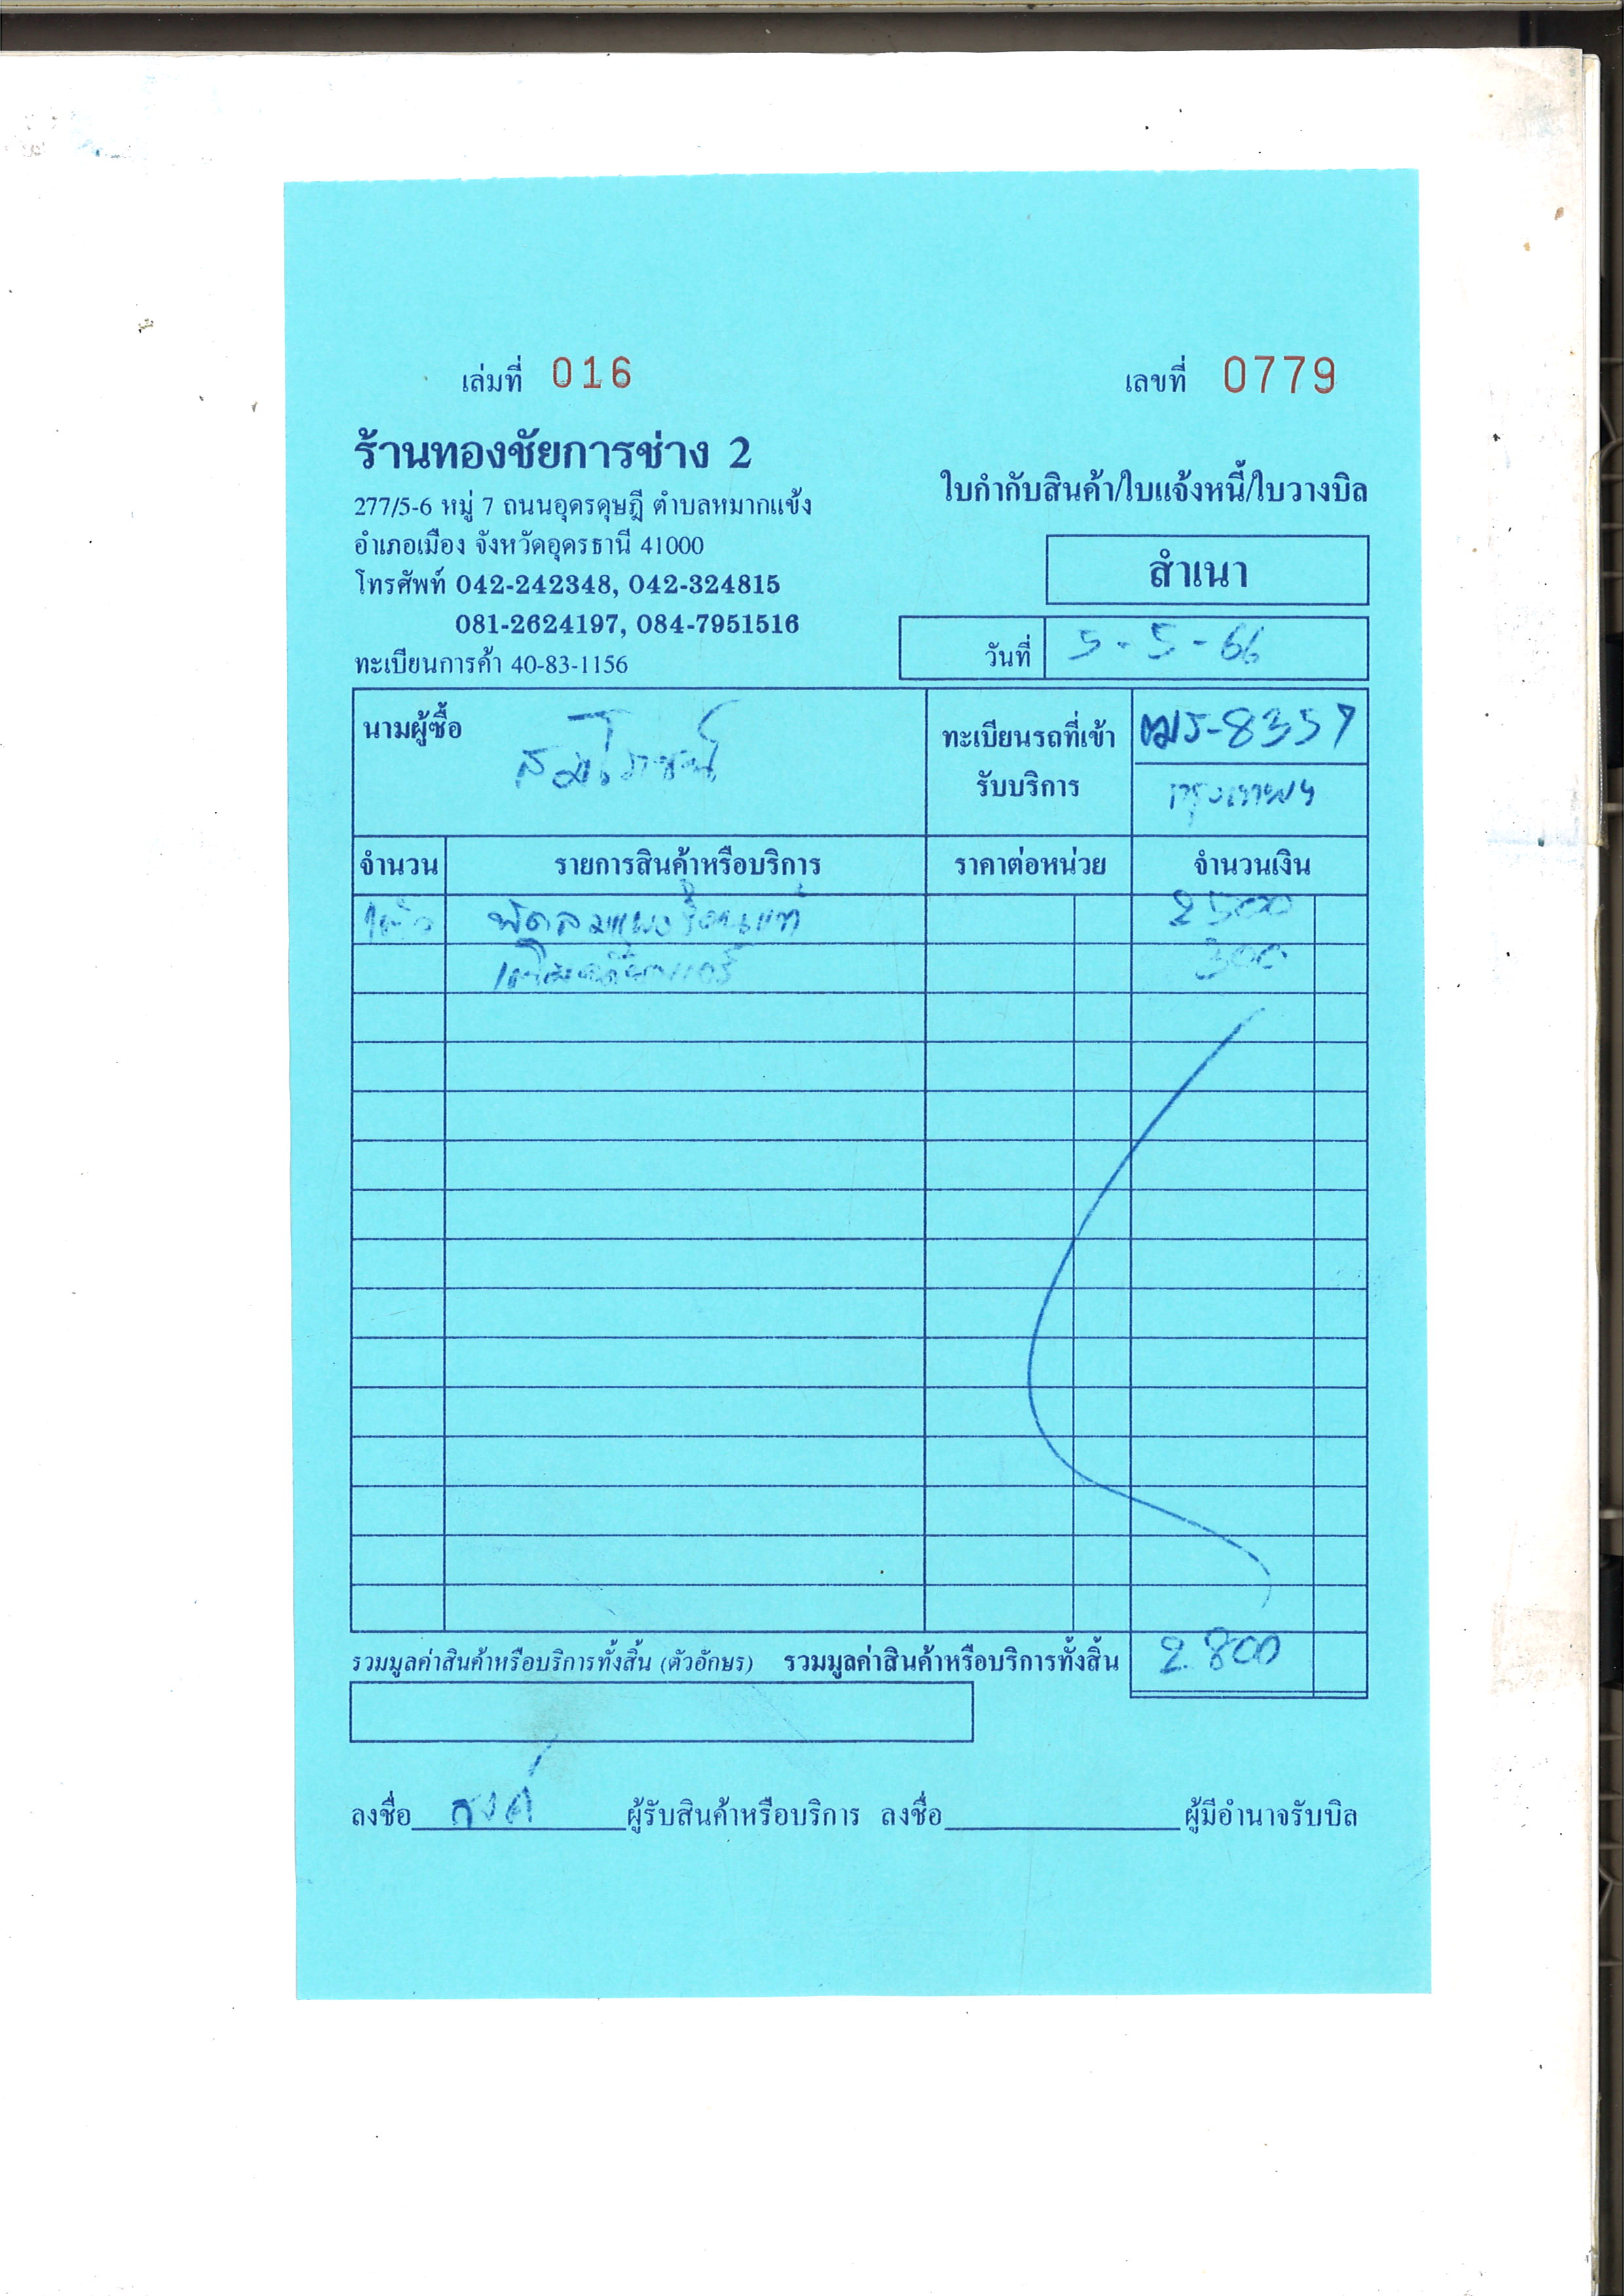 เล่มที่ 016
เลขที่ 0779
ร้านทองชัยการช่าง 2
277/5-6 หมู่ 7 ถนนอุดรดุษฎี ตำบลหมากแข้ง
อำเภอเมือง จังหวัดอุดรธานี 41000
โทรศัพท์ 042-242348, 042-324815
081-2624197, 084-7951516
ทะเบียนการค้า 40-83-1156
ใบกำกับสินค้า/ใบแจ้งหนี้/ใบวางบิล
สำเนา
วันที่ 5-5-66
นามผู้ซื้อ
ทะเบียนรถที่เข้ารับบริการ
กรุงเทพฯ
จำนวน รายการสินค้าหรือบริการ ราคาต่อหน่วย จำนวนเงิน
พัดลมแผงร้อนแท้ 2500
300
รวมมูลค่าสินค้าหรือบริการทั้งสิ้น (ตัวอักษร) รวมมูลค่าสินค้าหรือบริการทั้งสิ้น 2800
ลงชื่อ ผู้รับสินค้าหรือบริการ ลงชื่อ ผู้มีอำนาจรับบิล